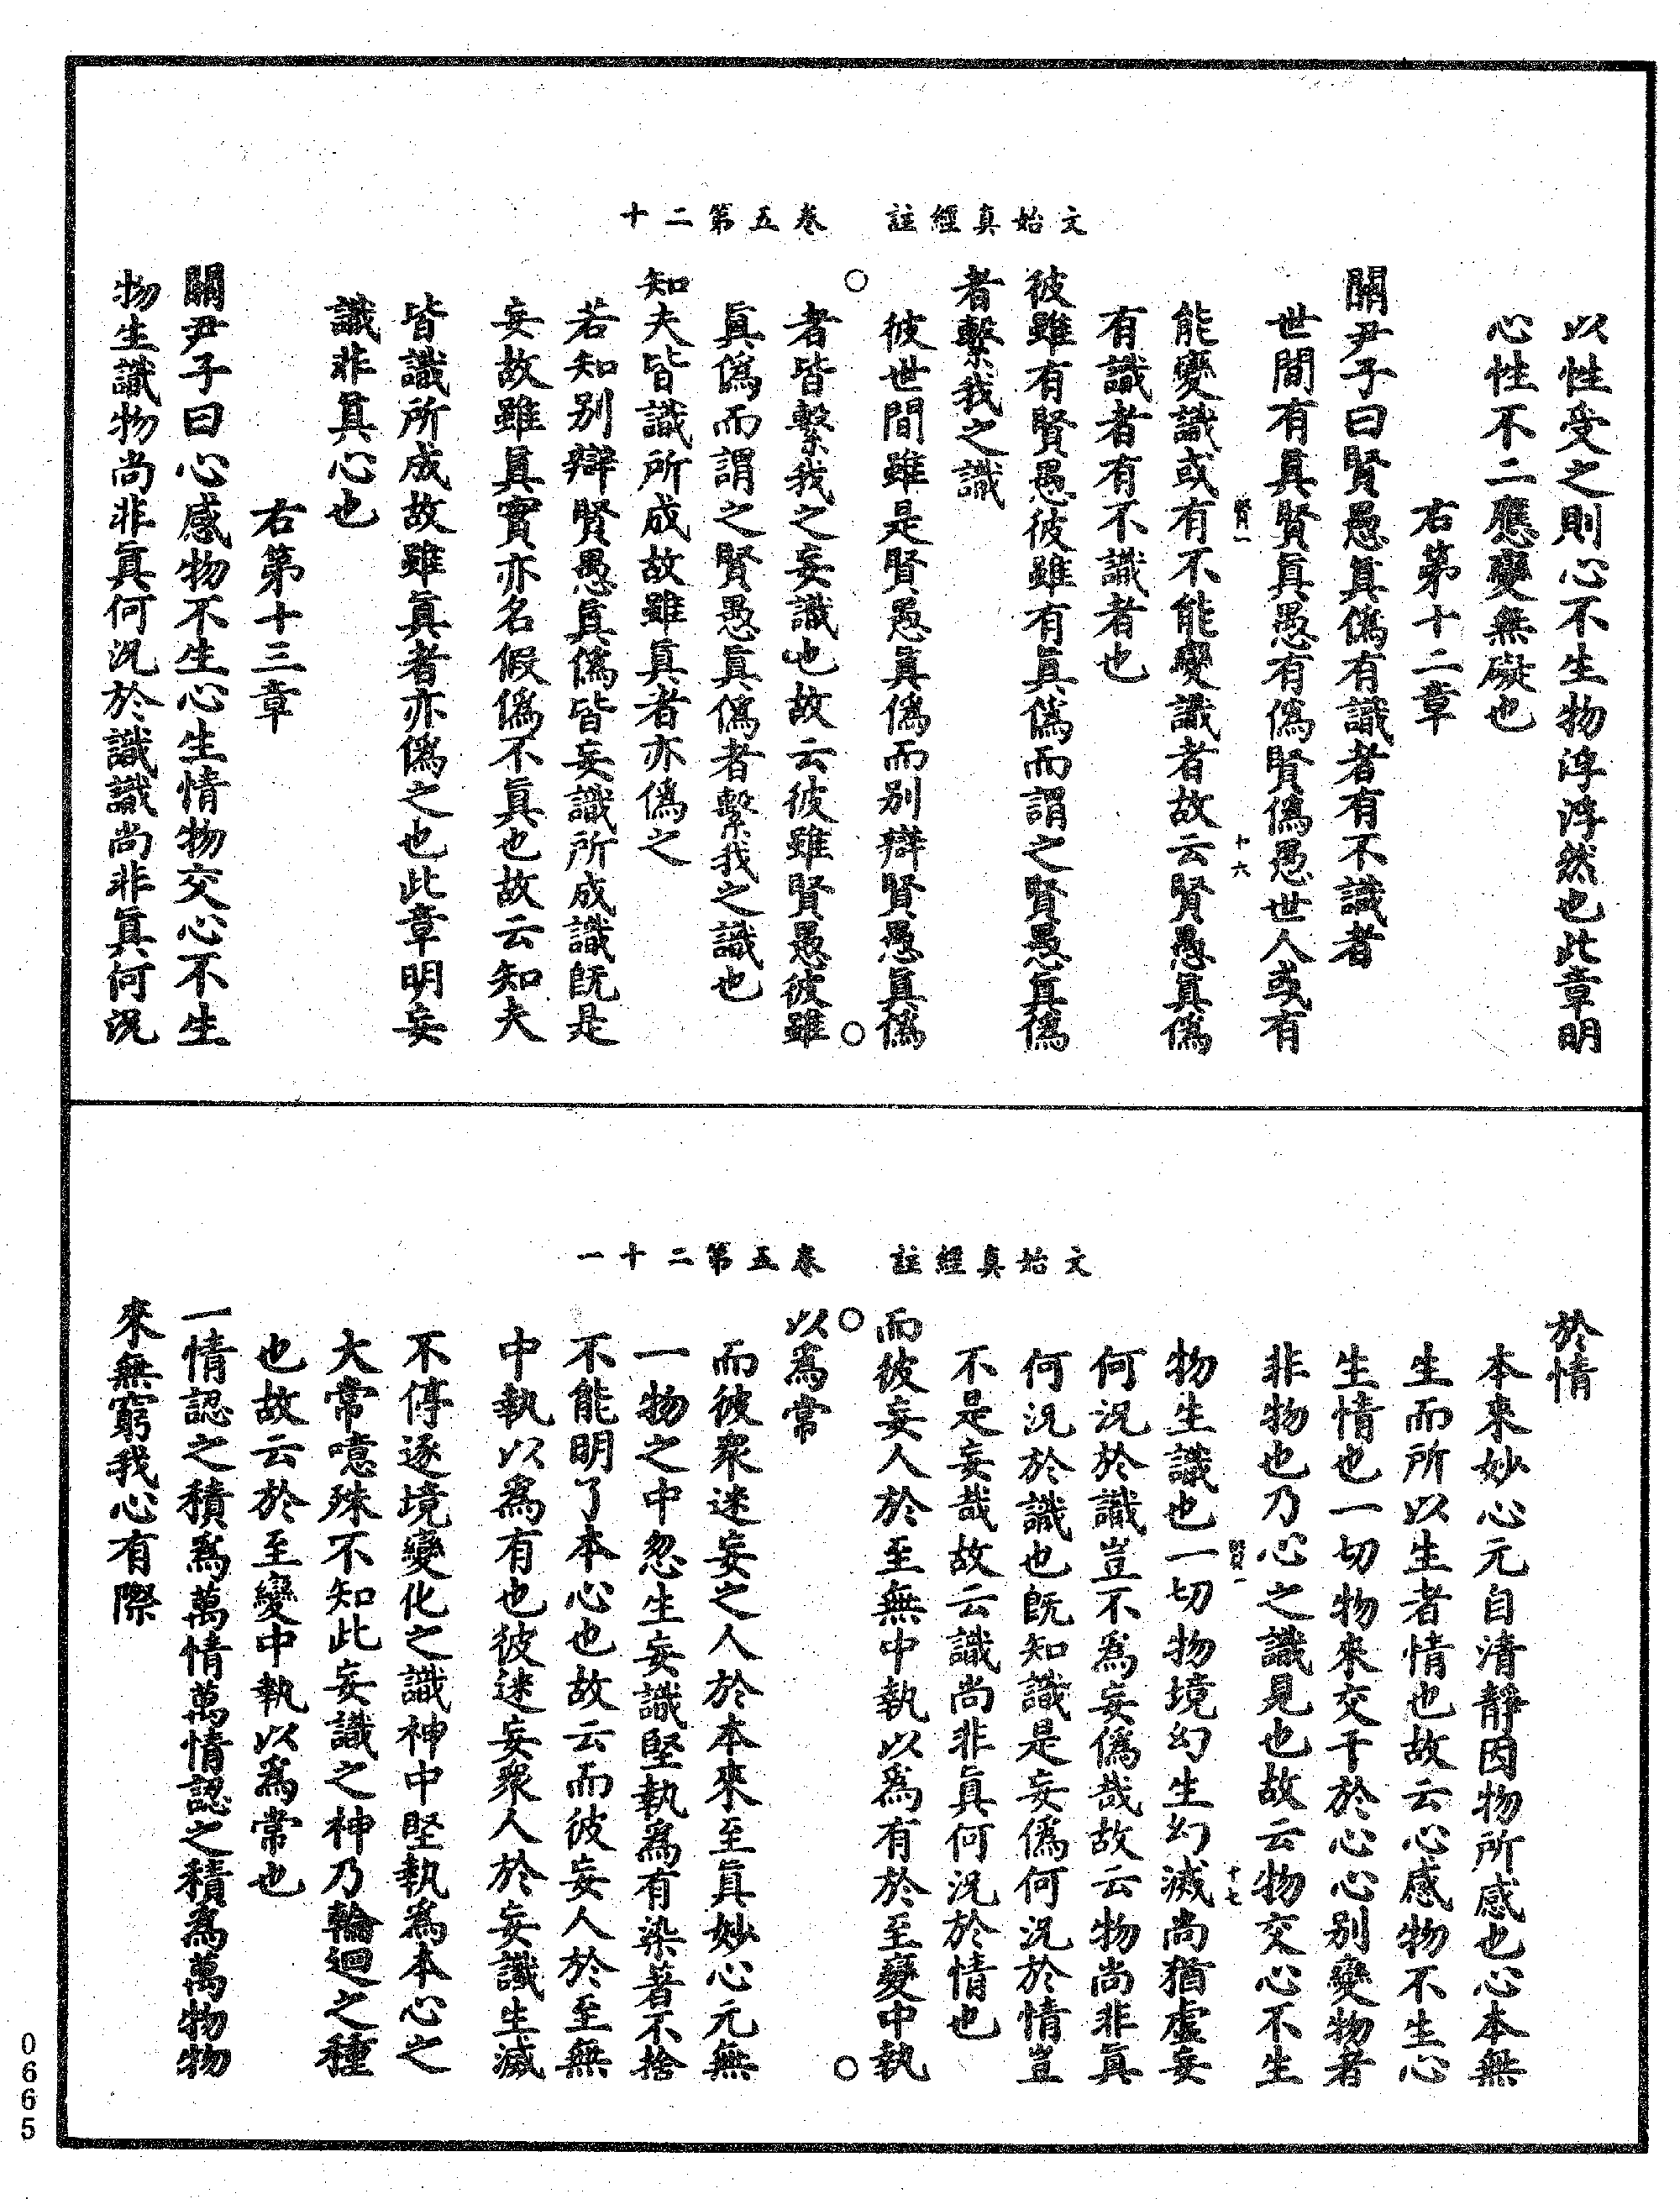 文始真經註　卷五第二十
以性受之則心不生物浮浮然也此章明
心性不二應變無礙也
右第十二章
關尹子曰賢愚眞僞有識者有不識者
世間有眞賢眞愚有僞賢僞愚世人或有
賢一
十六
能變識或有不能變識者故云賢愚眞僞
有識者有不識者也
彼雖有賢愚彼雖有眞僞而謂之賢愚眞僞
者繫我之識
彼世間雖是賢愚眞僞而別辯賢愚眞僞
者皆繫我之妄識也故云彼雖賢愚彼雖
眞僞而謂之賢愚眞僞者繫我之識也
知夫皆識所成故雖眞者亦僞之
若知別辯賢愚眞僞皆妄識所成識既是
妄故雖眞實亦名假僞不眞也故云知夫
皆識所成故雖眞者亦僞之也此章明妄
識非眞心也
右第十三章
關尹子曰心感物不生心生情物交心不生
物生識物尚非眞何況於識識尚非眞何況
文始真經註　卷五第二十一
於情
本來妙心元自清靜因物所感也心本無
生而所以生者情也故云心感物不生心
生情也一切物來交干於心心別變物者
非物也乃心之識見也故云物交心不生
賢一
十七
物生識也一切物境幻生幻滅尚猶虛妄
何況於識豈不爲妄僞哉故云物尚非眞
何況於識也既知識是妄僞何況於情豈
不是妄哉故云識尚非眞何況於情也
而彼妄人於至無中執以爲有於至變中執
以爲常
而彼眾迷妄之人於本來至眞妙心元無
一物之中忽生妄識堅執爲有染著不捨
不能明了本心也故云而彼妄人於至無
中執以爲有也彼迷妄眾人於妄識生滅
不停逐境變化之識神中堅執爲本心之
大常噫殊不知此妄識之神乃輪迴之種
也故云於至變中執以爲常也
一情認之積爲萬情萬情認之積爲萬物物
來無窮我心有際
0665